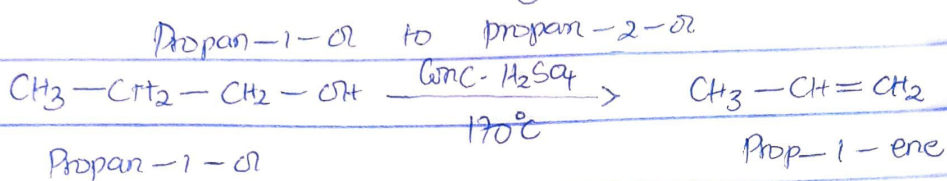 Propan-1-ol to propan-2-ol
CH3-CH2-CH2-OH Conc. H2SO4 170°C > CH3-CH=CH2
Propan-1-ol Prop-1-ene